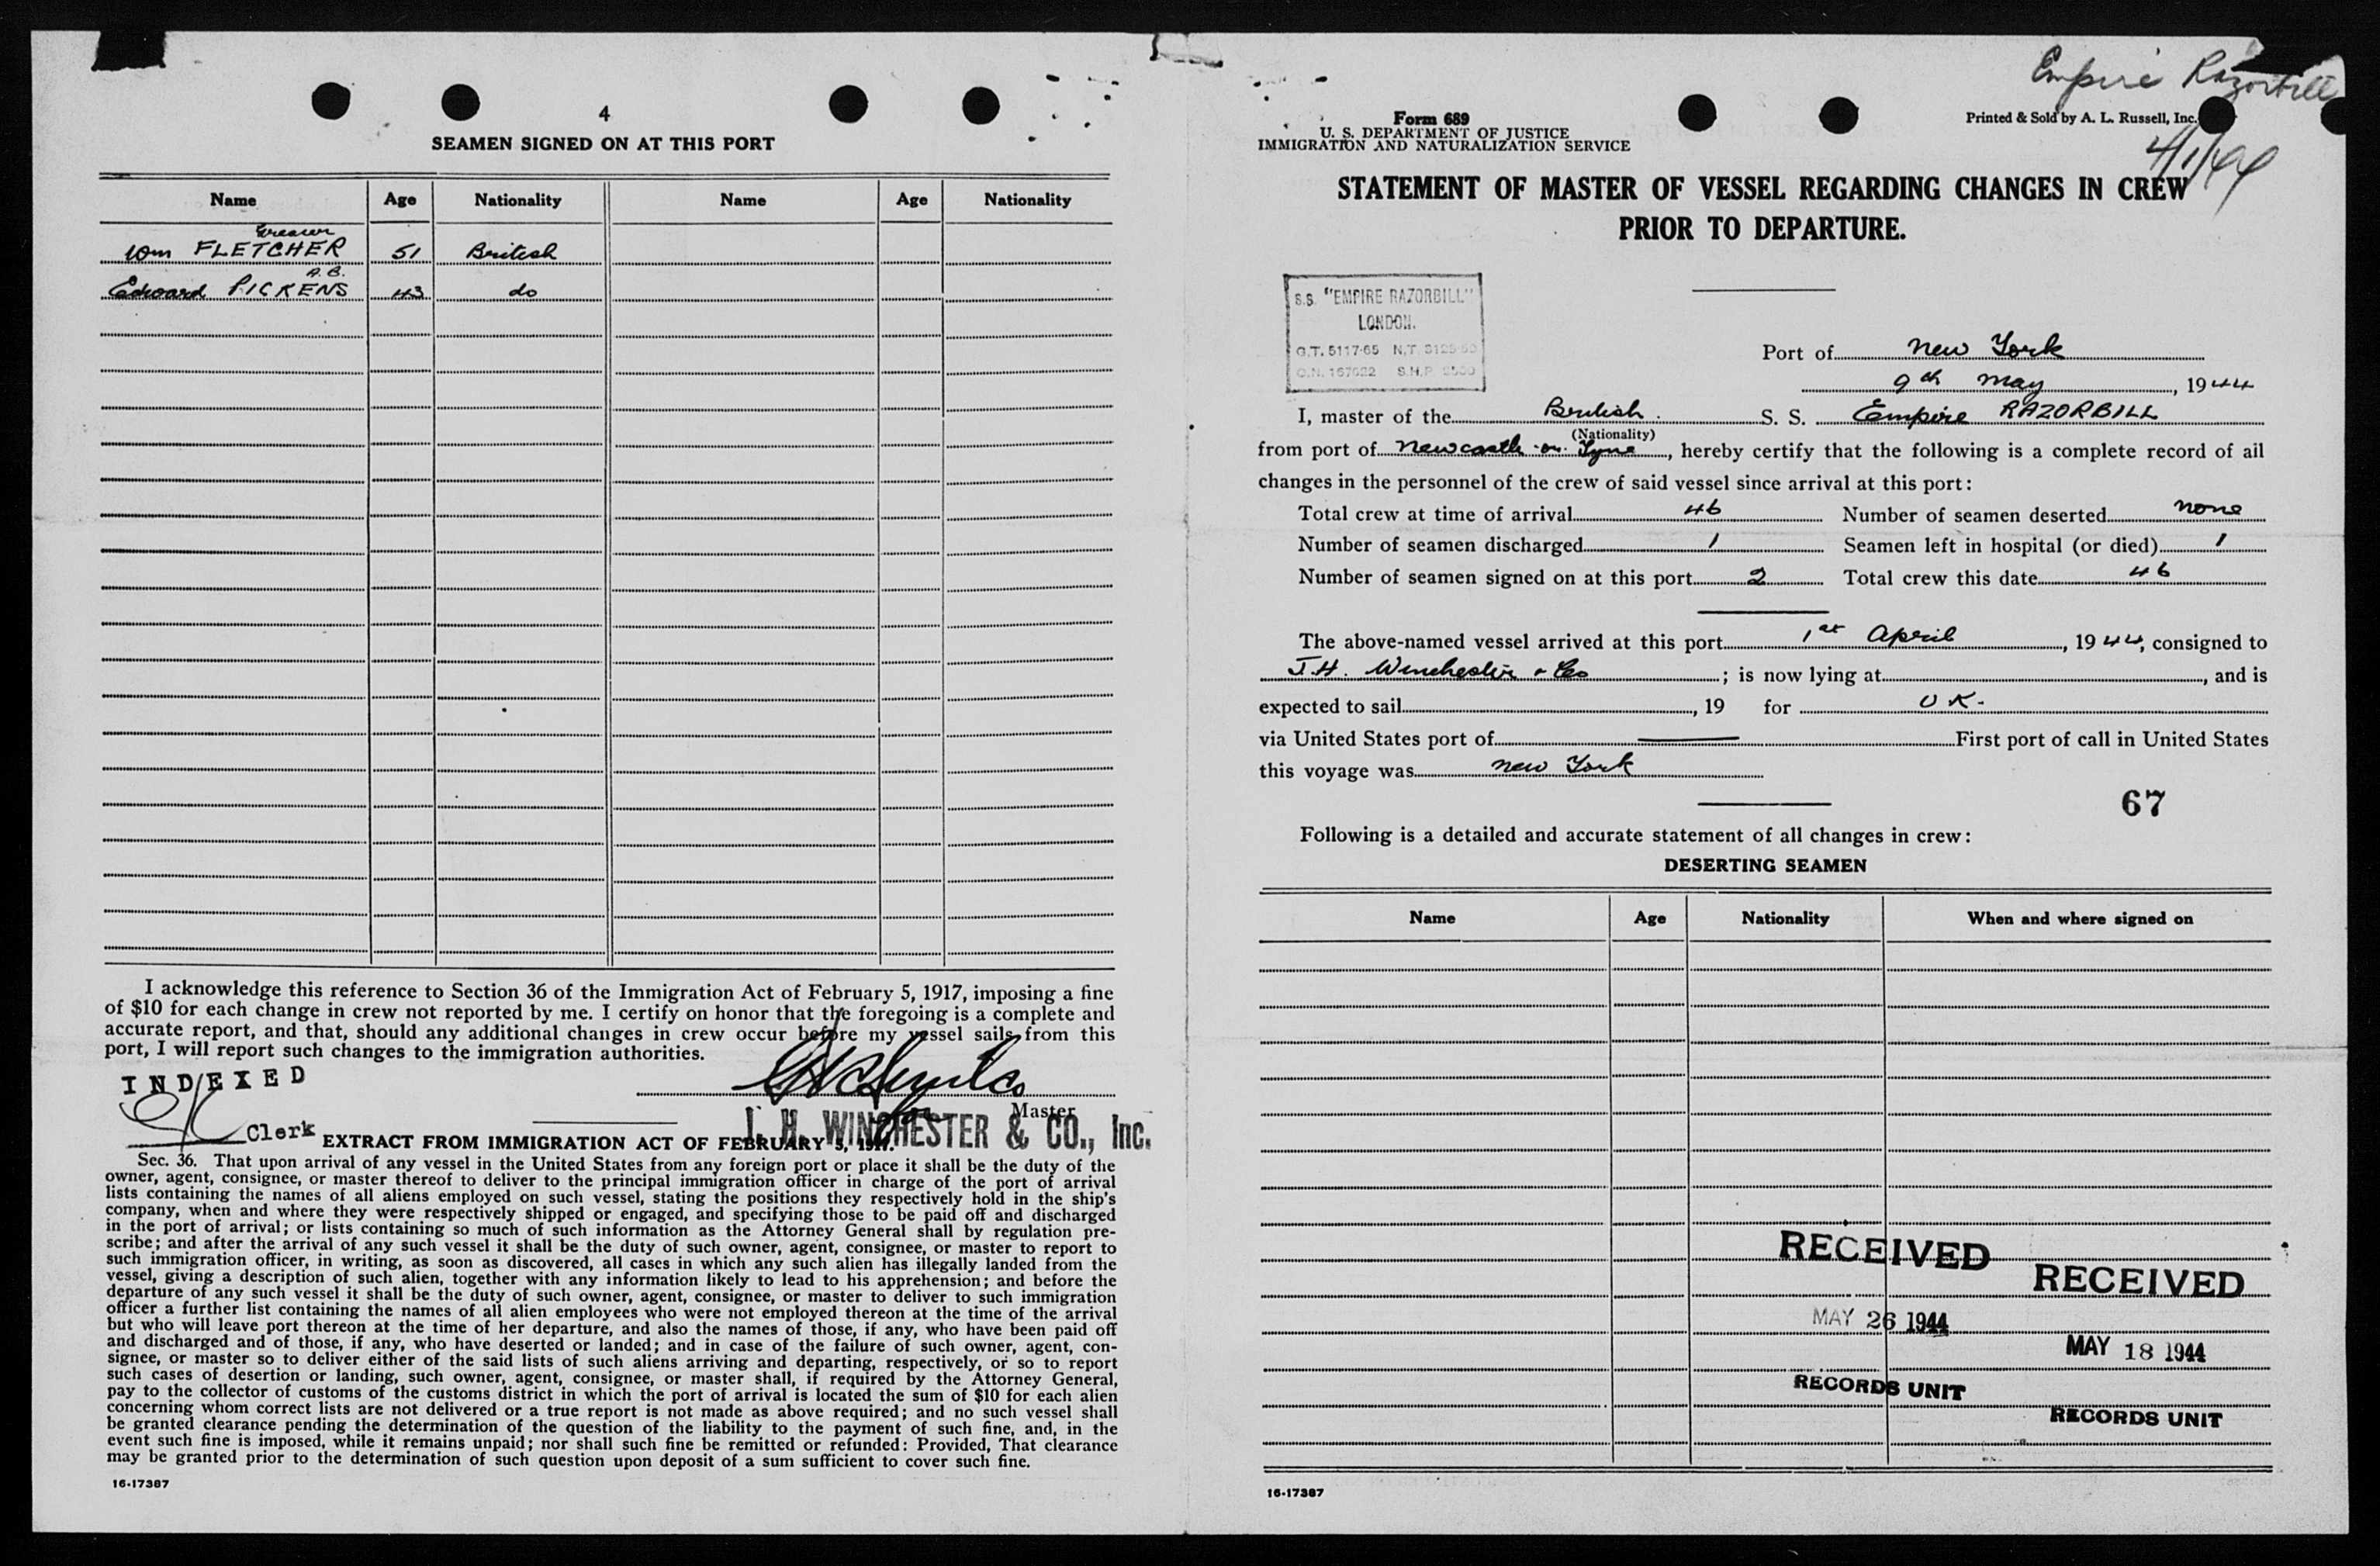 4
SEAMEN SIGNED ON AT THIS PORT
Name Age Nationality Name Age Nationality
Greaser
Wm FLETCHER 51 British
A.B.
Edward PICKENS 43 do
I acknowledge this reference to Section 36 of the Immigration Act of February 5, 1917, imposing a fine
of $10 for each change in crew not reported by me. I certify on honor that the foregoing is a complete and
accurate report, and that, should any additional changes in crew occur before my vessel sails from this
port, I will report such changes to the immigration authorities.
INDEXED
Master
Clerk
J. H. WINCHESTER & CO., Inc.
EXTRACT FROM IMMIGRATION ACT OF FEBRUARY 5, 1917.
Sec. 36. That upon arrival of any vessel in the United States from any foreign port or place it shall be the duty of the
owner, agent, consignee, or master thereof to deliver to the principal immigration officer in charge of the port of arrival
lists containing the names of all aliens employed on such vessel, stating the positions they respectively hold in the ship's
company, when and where they were respectively shipped or engaged, and specifying those to be paid off and discharged
in the port of arrival; or lists containing so much of such information as the Attorney General shall by regulation pre-
scribe; and after the arrival of any such vessel it shall be the duty of such owner, agent, consignee, or master to report to
such immigration officer, in writing, as soon as discovered, all cases in which any such alien has illegally landed from the
vessel, giving a description of such alien, together with any information likely to lead to his apprehension; and before the
departure of any such vessel it shall be the duty of such owner, agent, consignee, or master to deliver to such immigration
officer a further list containing the names of all alien employees who were not employed thereon at the time of the arrival
but who will leave port thereon at the time of her departure, and also the names of those, if any, who have been paid off
and discharged and of those, if any, who have deserted or landed; and in case of the failure of such owner, agent, con-
signee, or master so to deliver either of the said lists of such aliens arriving and departing, respectively, or so to report
such cases of desertion or landing, such owner, agent, consignee, or master shall, if required by the Attorney General,
pay to the collector of customs of the customs district in which the port of arrival is located the sum of $10 for each alien
concerning whom correct lists are not delivered or a true report is not made as above required; and no such vessel shall
be granted clearance pending the determination of the question of the liability to the payment of such fine, and, in the
event such fine is imposed, while it remains unpaid; nor shall such fine be remitted or refunded: Provided, That clearance
may be granted prior to the determination of such question upon deposit of a sum sufficient to cover such fine.
16-17387
Empire Razorbill
4/1/44
Form 689
U. S. DEPARTMENT OF JUSTICE
IMMIGRATION AND NATURALIZATION SERVICE
Printed & Sold by A. L. Russell, Inc.
STATEMENT OF MASTER OF VESSEL REGARDING CHANGES IN CREW
PRIOR TO DEPARTURE.
S.S. "EMPIRE RAZORBILL"
LONDON.
G.T. 5117·65 N.T.
O.N. S.H.P.
Port of New York
9th May, 1944
I, master of the British S. S. Empire RAZORBILL
(Nationality)
from port of Newcastle on Tyne, hereby certify that the following is a complete record of all
changes in the personnel of the crew of said vessel since arrival at this port:
Total crew at time of arrival 46 Number of seamen deserted none
Number of seamen discharged 1 Seamen left in hospital (or died) 1
Number of seamen signed on at this port 2 Total crew this date 46
The above-named vessel arrived at this port 1st April, 1944, consigned to
J.H. Winchester & Co; is now lying at, and is
expected to sail, 19 for U K.
via United States port of First port of call in United States
this voyage was New York
67
Following is a detailed and accurate statement of all changes in crew:
DESERTING SEAMEN
Name Age Nationality When and where signed on
RECEIVED
MAY 26 1944
RECORDS UNIT
RECEIVED
MAY 18 1944
RECORDS UNIT
16-17387